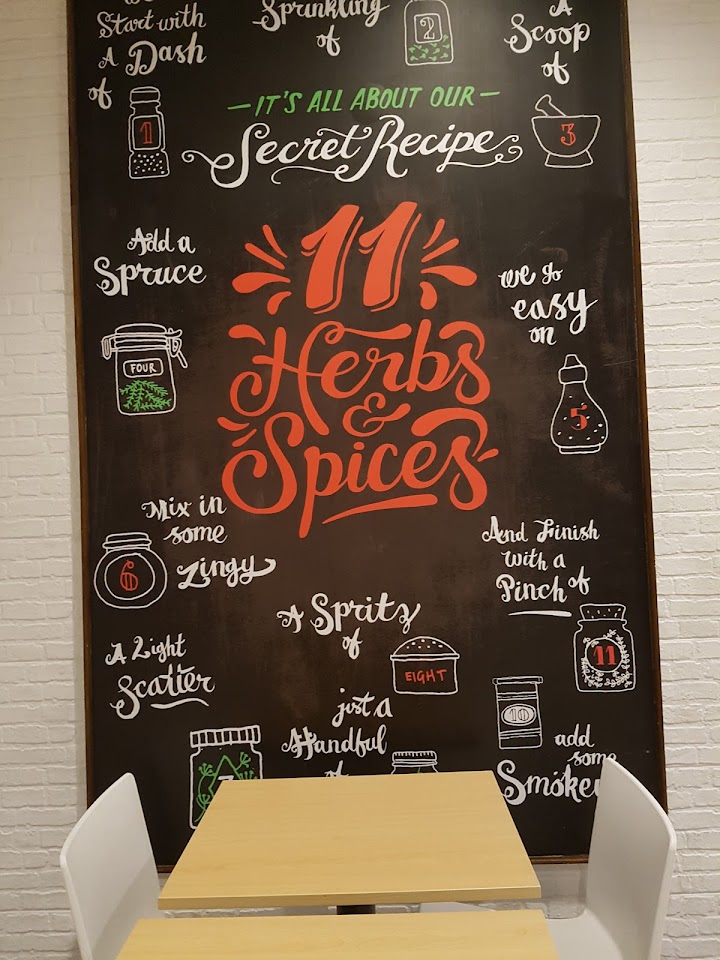 Start with
A Dash
of
1
Sprinkling
of
2
A
Scoop
of
3
—IT'S ALL ABOUT OUR—
Secret Recipe
11
Herbs
&
Spices
Add a
Spruce
FOUR
we go
easy
on
5
Mix in
some
Zingy
6
And Finish
with a
Pinch of
11
A Spritz
of
EIGHT
A Light
Scatter
7
just a
Handful
of
10
add
some